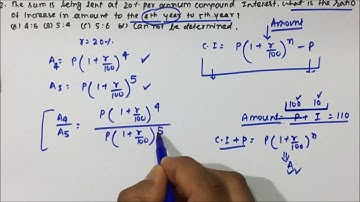 2. The sum is being lent at 20% per annum compound Interest. what is the ratio
of increase in amount to the 4th year to 5th year?
(A) 4:5 (B) 5:4 (C) 5:6 (D) Cannot be determined.
r = 20%
A4 = P(1 + r/100)^4 ✓
A5 = P(1 + r/100)^5 ✓
A4/A5 = P(1 + r/100)^4 / P(1 + r/100)^5
Amount
C.I = P(1 + r/100)^n - P
100 10
Amount = P + I = 110
C.I + P = P(1 + r/100)^n
A